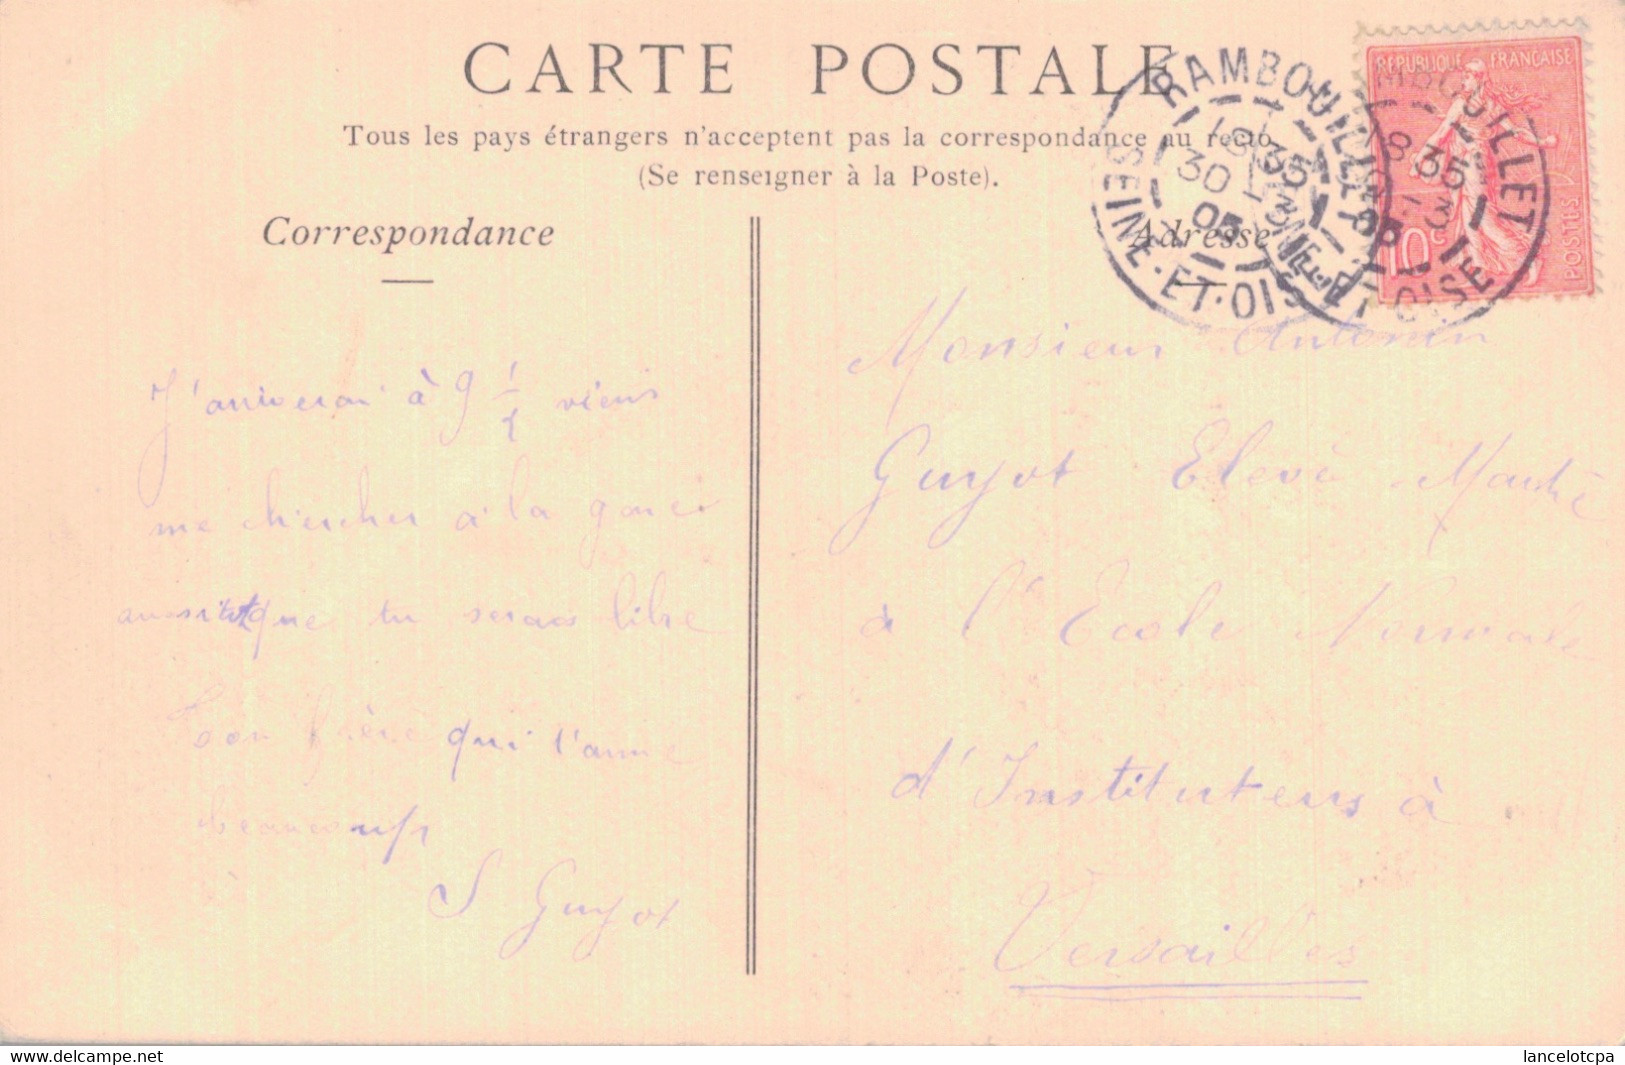 CARTE POSTALE
Tous les pays étrangers n'acceptent pas la correspondance au recto
(Se renseigner à la Poste).
RAMBOUILLET
SEINE-ET-OISE
RAMBOUILLET
8 35
SEINE-ET-OISE
REPUBLIQUE FRANÇAISE
10c
POSTES
Correspondance
J'arriverai à 9 1/2 viens
me chercher à la gare
aussitôt que tu seras libre
Ton frère qui t'aime
beaucoup
S Guyot
Adresse
Monsieur Antonin
Guyot Elevè Maitre
à l'Ecole Normale
d'Instituteurs à
Versailles
www.delcampe.net
lancelotcpa